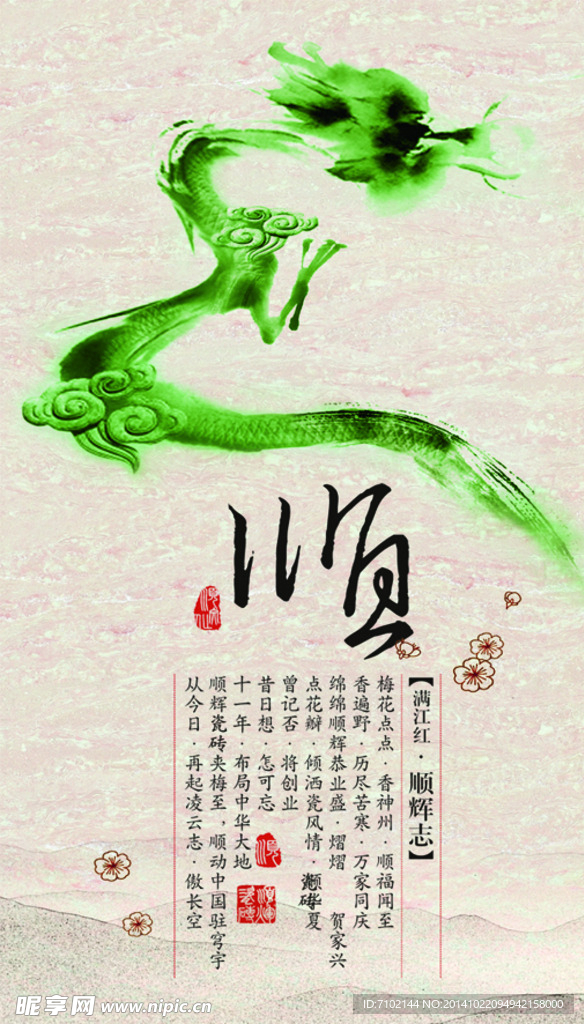 順
【满江红·顺辉志】
梅花点点·香神州·顺福闻至
香遍野·历尽苦寒·万家同庆
绵绵顺辉恭业盛·熠熠 贺家兴
点花瓣·倾洒瓷风情· 华夏
曾记否·将创业
昔日想·怎可忘
十一年·布局中华大地
顺辉瓷砖夹梅至，顺动中国驻穹宇
从今日·再起凌云志·傲长空
昵享网 www.nipic.cn
ID:7102144 NO:20141022094942158000